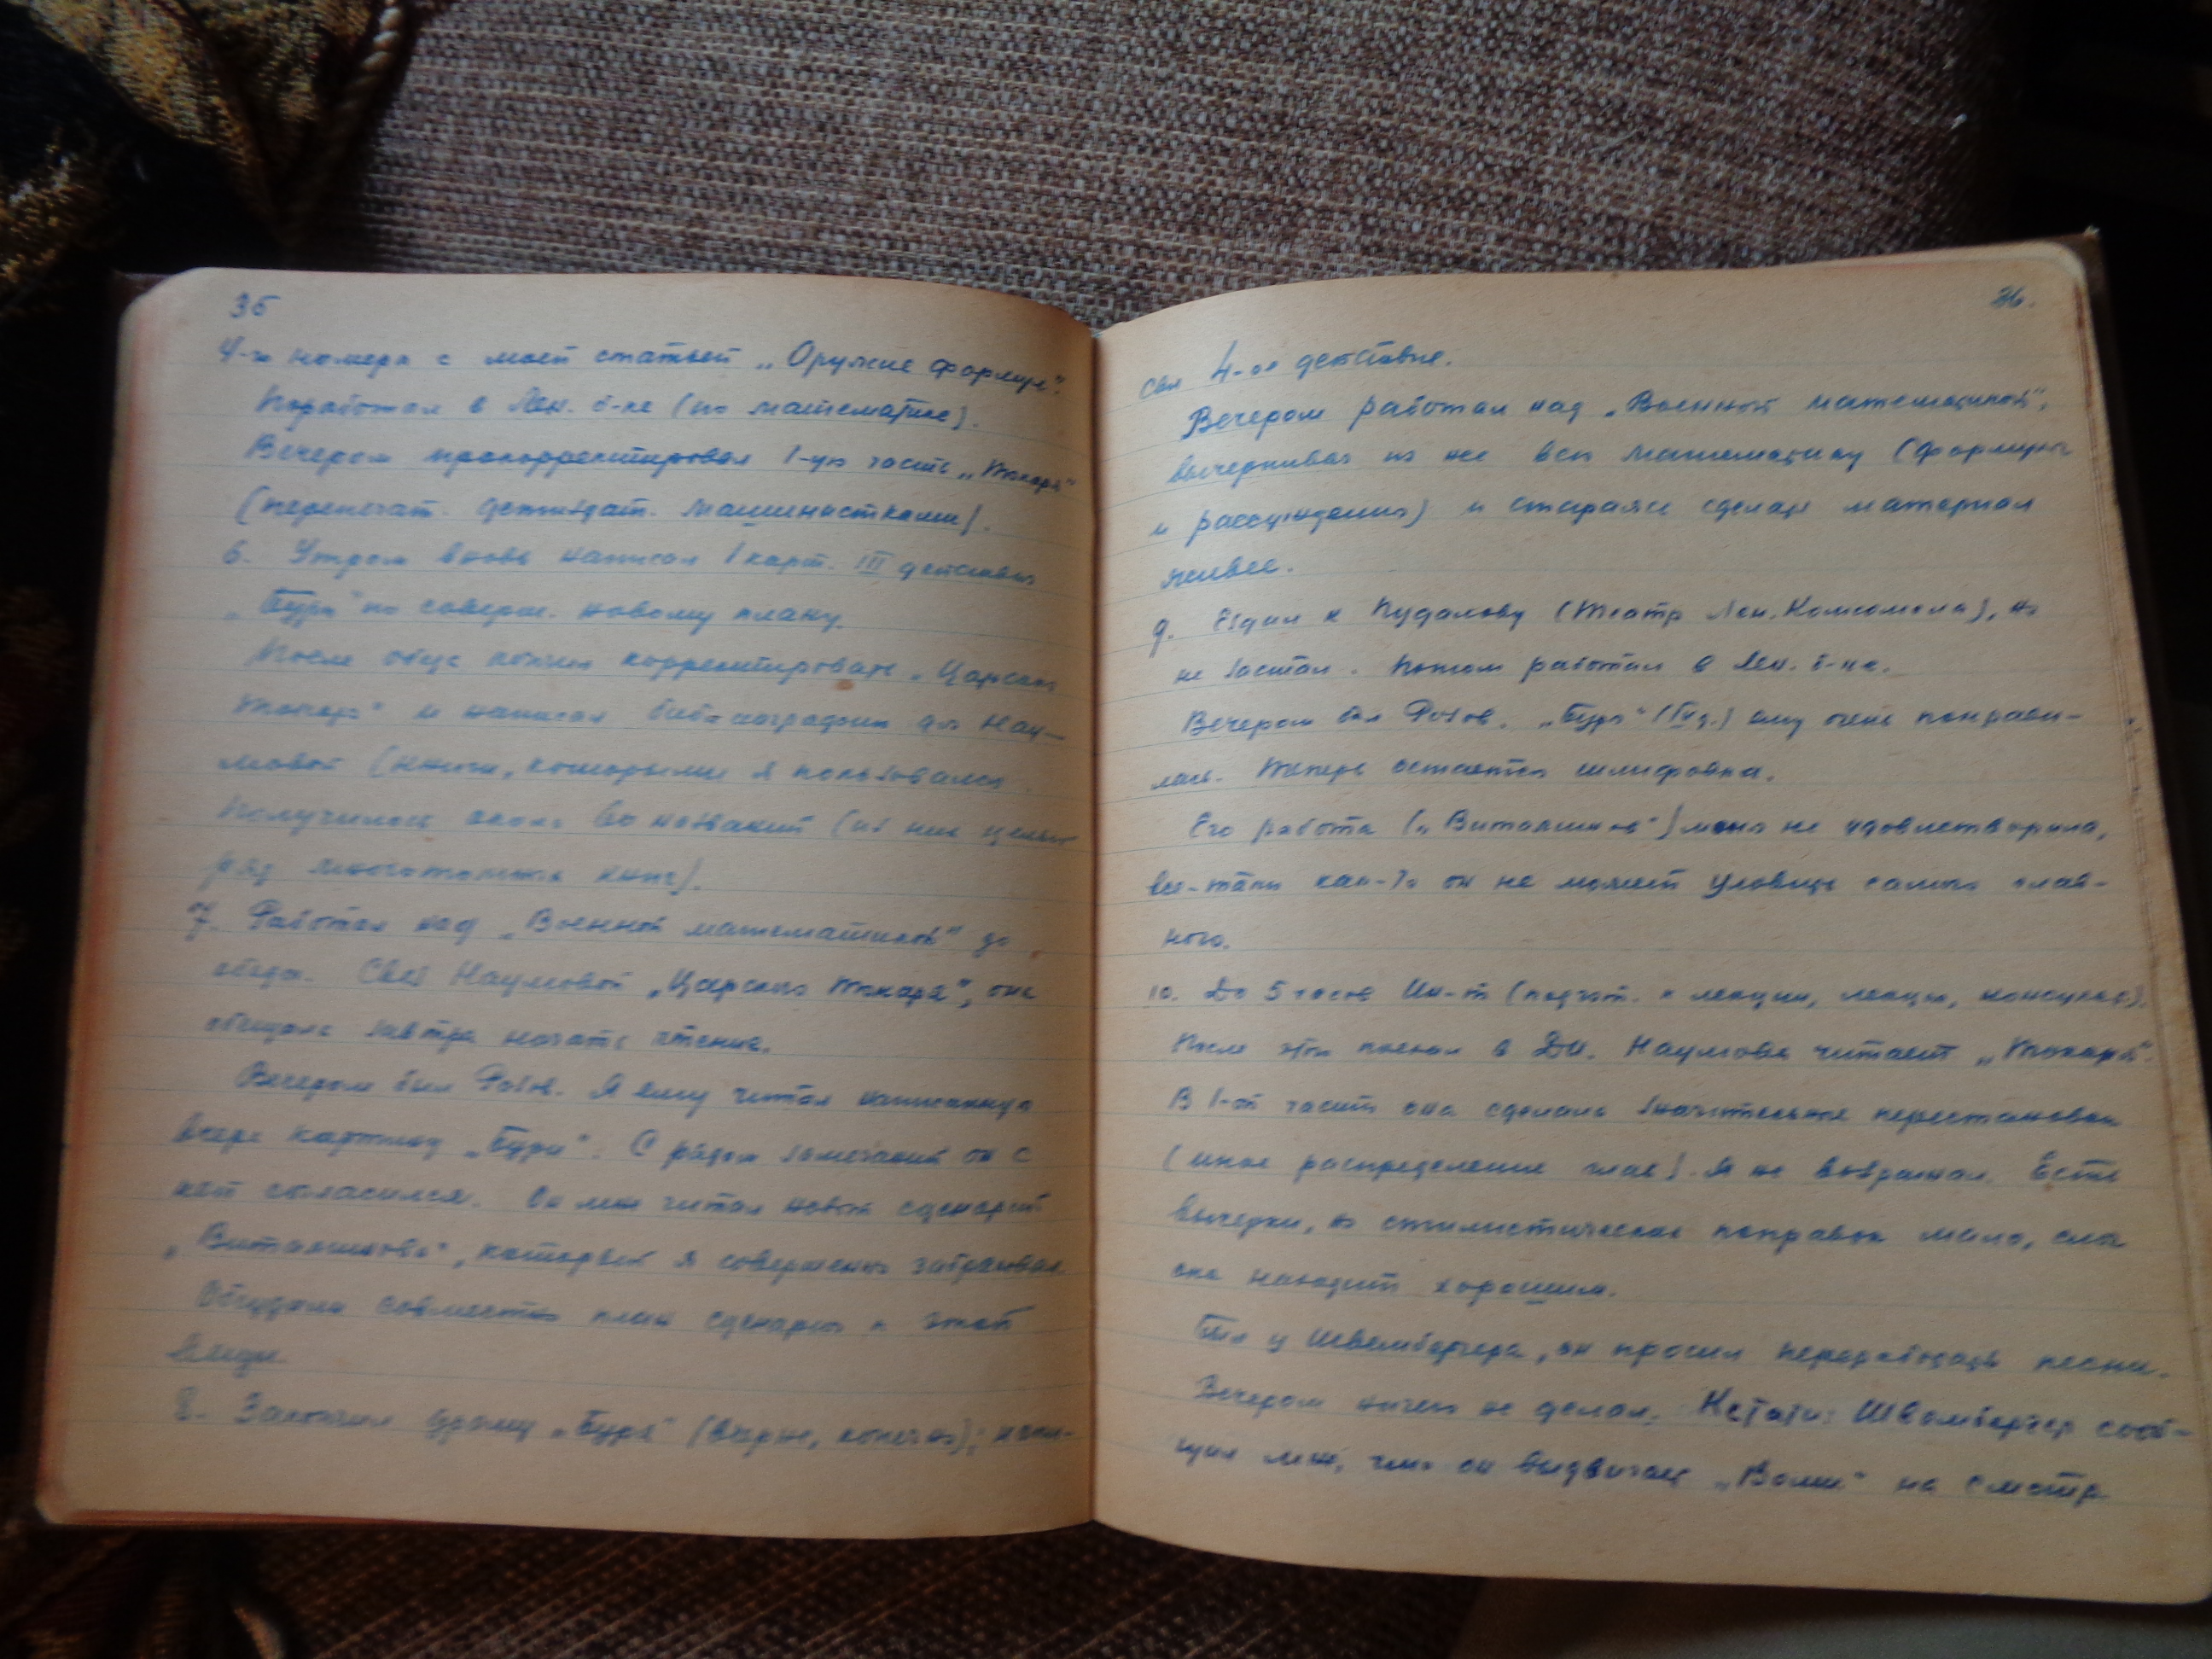 35
4-го номера с моей статьей „Оружие формул".
Поработал в Лен. б-ке (по математике).
Вечером прокорректировал 1-ую часть „Токаря"
(перепечат. детиздат. машинистками).
6. Утром вновь написал 1 карт. III действия
„Бури" по соверш. новому плану.
После обеда кончил корректировать „Царского
токаря" и написал библиографию для Нау-
мовой (книги, которыми я пользовался.
Получилось около 60 названий (из них целый
ряд многотомных книг).
7. Работал над „Военной математикой" до
обеда. Свез Наумовой „Царского токаря", она
обещала завтра начать чтение.
Вечером был Розов. Я ему читал написанную
вчера картину „Бури". С рядом замечаний он с
ней согласился. Он мне читал новый сценарий
„Витаминова", который я совершенно забраковал
Обсудили совместно план сценария к этой
вещи.
8. Закончил драму „Буря" (вчерне, конечно); напи-
36.
сал 4-ое действие.
Вечером работал над „Военной математикой",
вычеркивая из нее всю математику (формулы
и рассуждения) и стараясь сделать материал
живее.
9. Ездил к Пудалову (Театр Лен. Комсомола), но
не застал. Потом работал в Лен. б-ке.
Вечером был Розов. „Буря" (IV д.) ему очень понрави-
лась. Теперь остается шлифовка.
Его работа („Витаминов") меня не удовлетворила,
все-таки как-то он не может уловить самого глав-
ного.
10. До 5 часов Ин-т (подгот. к лекции, лекция, консультац).
После этого поехал в ДИ. Наумова читает „Токаря".
В 1-ой части она сделала значительные перестановки
(иное распределение глав). Я не возражал. Есть
вычерки, но стилистических поправок мало, слог
она находит хорошим.
Был у Швембергера, он просил переработать песни.
Вечером ничего не делал. Кстати: Швембергер сооб-
щил мне, что он выдвигает „Волш" на смотр